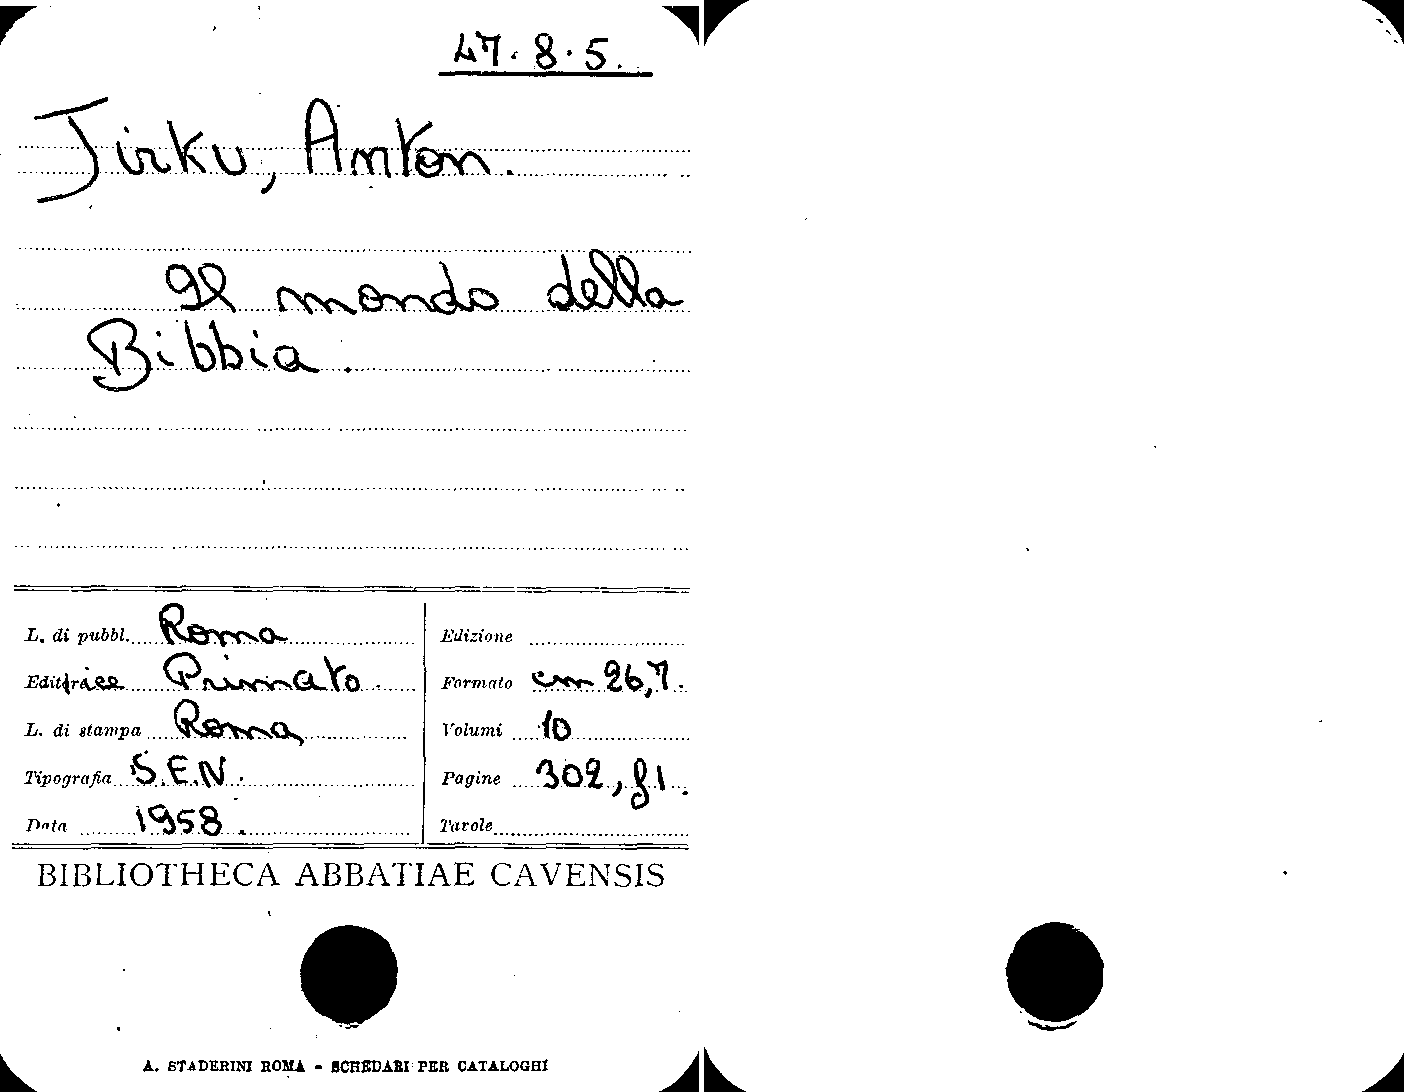 47.8.5.
Jirku, Anton.
Il mondo della
Bibbia.
L. di pubbl. Roma
Edizione
Editrice Primato.
Formato cm 26,7.
L. di stampa Roma,
Volumi 10
Tipografia S.E.N.
Pagine 302, f1.
Data 1958.
Tavole
BIBLIOTHECA ABBATIAE CAVENSIS
A. STADERINI ROMA - SCHEDARI PER CATALOGHI